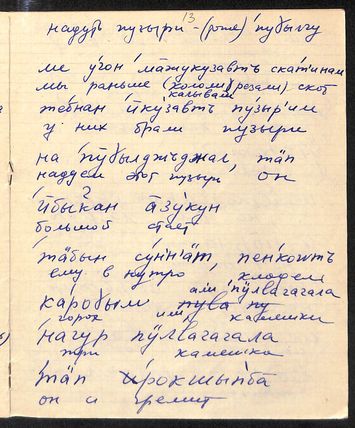 13
надуть пузыри - (рыже) пубылгу
ме угон мажукузавтъ скатинам
мы раньше (кололи) (резали) скот
калывали
тебнан йкузавтъ пузыр'им
у них брали пузыри
на пубылджъджал, тап
надуем этот пузырь, он
йбыкан азукун
большой стает
табын сун'н'ат, пенкоштъ
ему в нутро, кладем
али пулвачагала
каробым пува пу
горох или камешки
нагур пулвачагала
три камешка
тап ирокшыпба
он и гремит